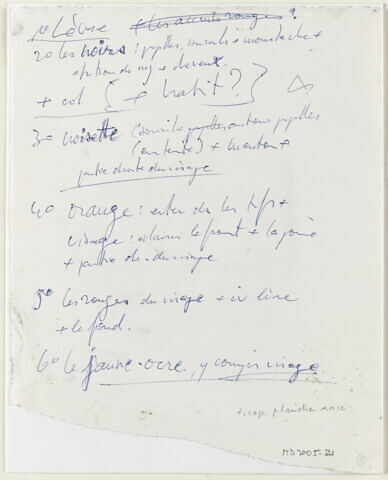 1° Lèvre + les accents rouges ?
2° les noires : pupilles, sourcils + moustache +
du nez + cheveux.
+ col { + habit ? }
3° noisette (sourcils pupilles autour pupilles
+ menton +
partie droite du visage
4° orange : +
visage : éclairer le front + la joue
+ partie dr. du visage
5° les rouges du visage + lèvre
+ le fond.
6° le jaune-ocre, y compris visage
tirage planche noire.
MD2005-21